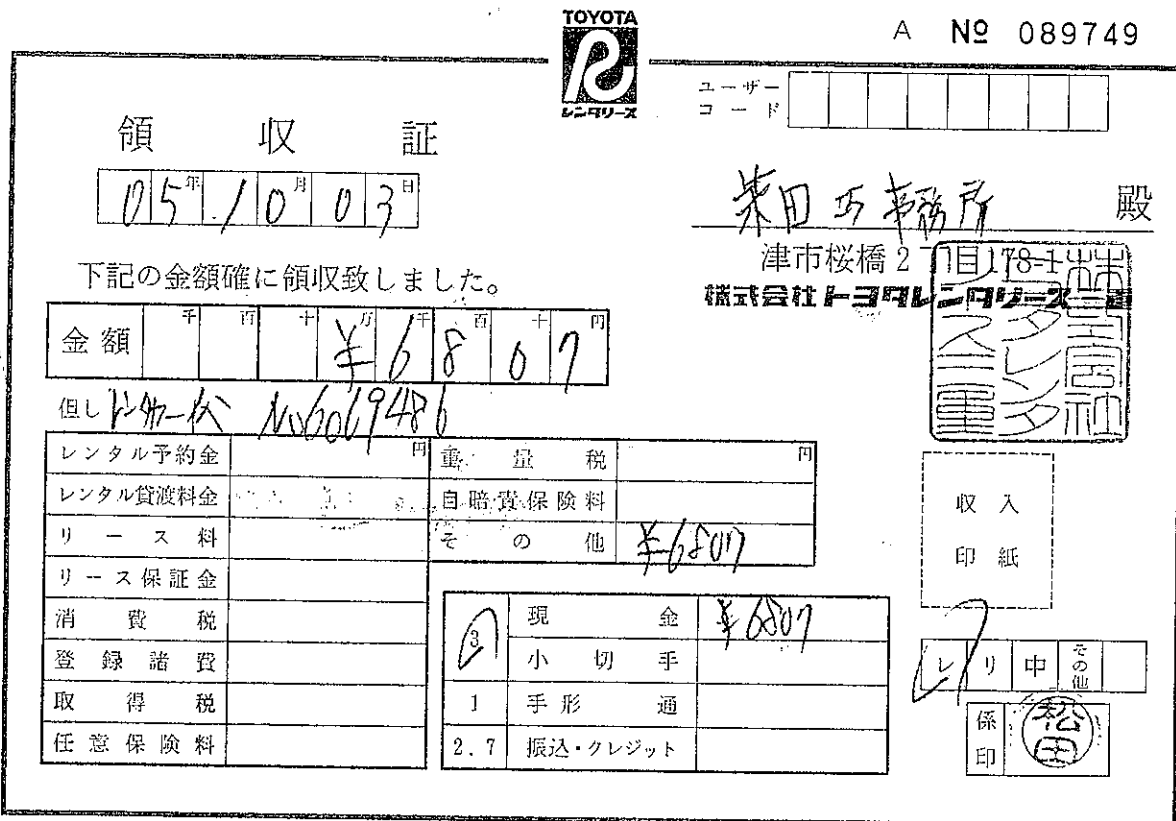 TOYOTA
レンタリース
A № 089749
ユーザーコード
領収証
05年10月03日
柴田巧事務所 殿
津市桜橋2丁目178-1
株式会社トヨタレンタリース三重
下記の金額確に領収致しました。
金額 千 百 十 万 千 百 十 円
¥6807
但し レンタカー代 No6069486
レンタル予約金 円 重量税 円
レンタル貸渡料金 自賠責保険料
リース料 その他 ¥6807
リース保証金
消費税
登録諸費
取得税
任意保険料
3 現金 ¥6807
小切手
1 手形 通
2.7 振込・クレジット
収入
印紙
レ リ 中 その他
係印 松田